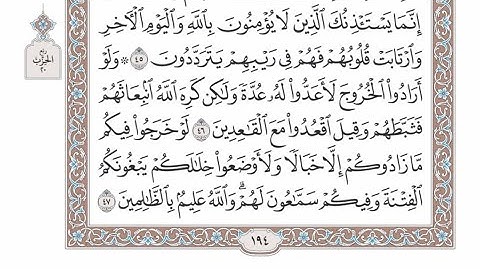 إِنَّمَا يَسْتَـْٔذِنُكَ ٱلَّذِينَ لَا يُؤْمِنُونَ بِٱللَّهِ وَٱلْيَوْمِ ٱلْءَاخِرِ
وَٱرْتَابَتْ قُلُوبُهُمْ فَهُمْ فِى رَيْبِهِمْ يَتَرَدَّدُونَ ٤٥ ۞ وَلَوْ
أَرَادُوا۟ ٱلْخُرُوجَ لَأَعَدُّوا۟ لَهُۥ عُدَّةً وَلَٰكِن كَرِهَ ٱللَّهُ ٱنۢبِعَاثَهُمْ
فَثَبَّطَهُمْ وَقِيلَ ٱقْعُدُوا۟ مَعَ ٱلْقَٰعِدِينَ ٤٦ لَوْ خَرَجُوا۟ فِيكُم
مَّا زَادُوكُمْ إِلَّا خَبَالًا وَلَأَوْضَعُوا۟ خِلَٰلَكُمْ يَبْغُونَكُمُ
ٱلْفِتْنَةَ وَفِيكُمْ سَمَّٰعُونَ لَهُمْ ۗ وَٱللَّهُ عَلِيمٌۢ بِٱلظَّٰلِمِينَ ٤٧
١٩٤